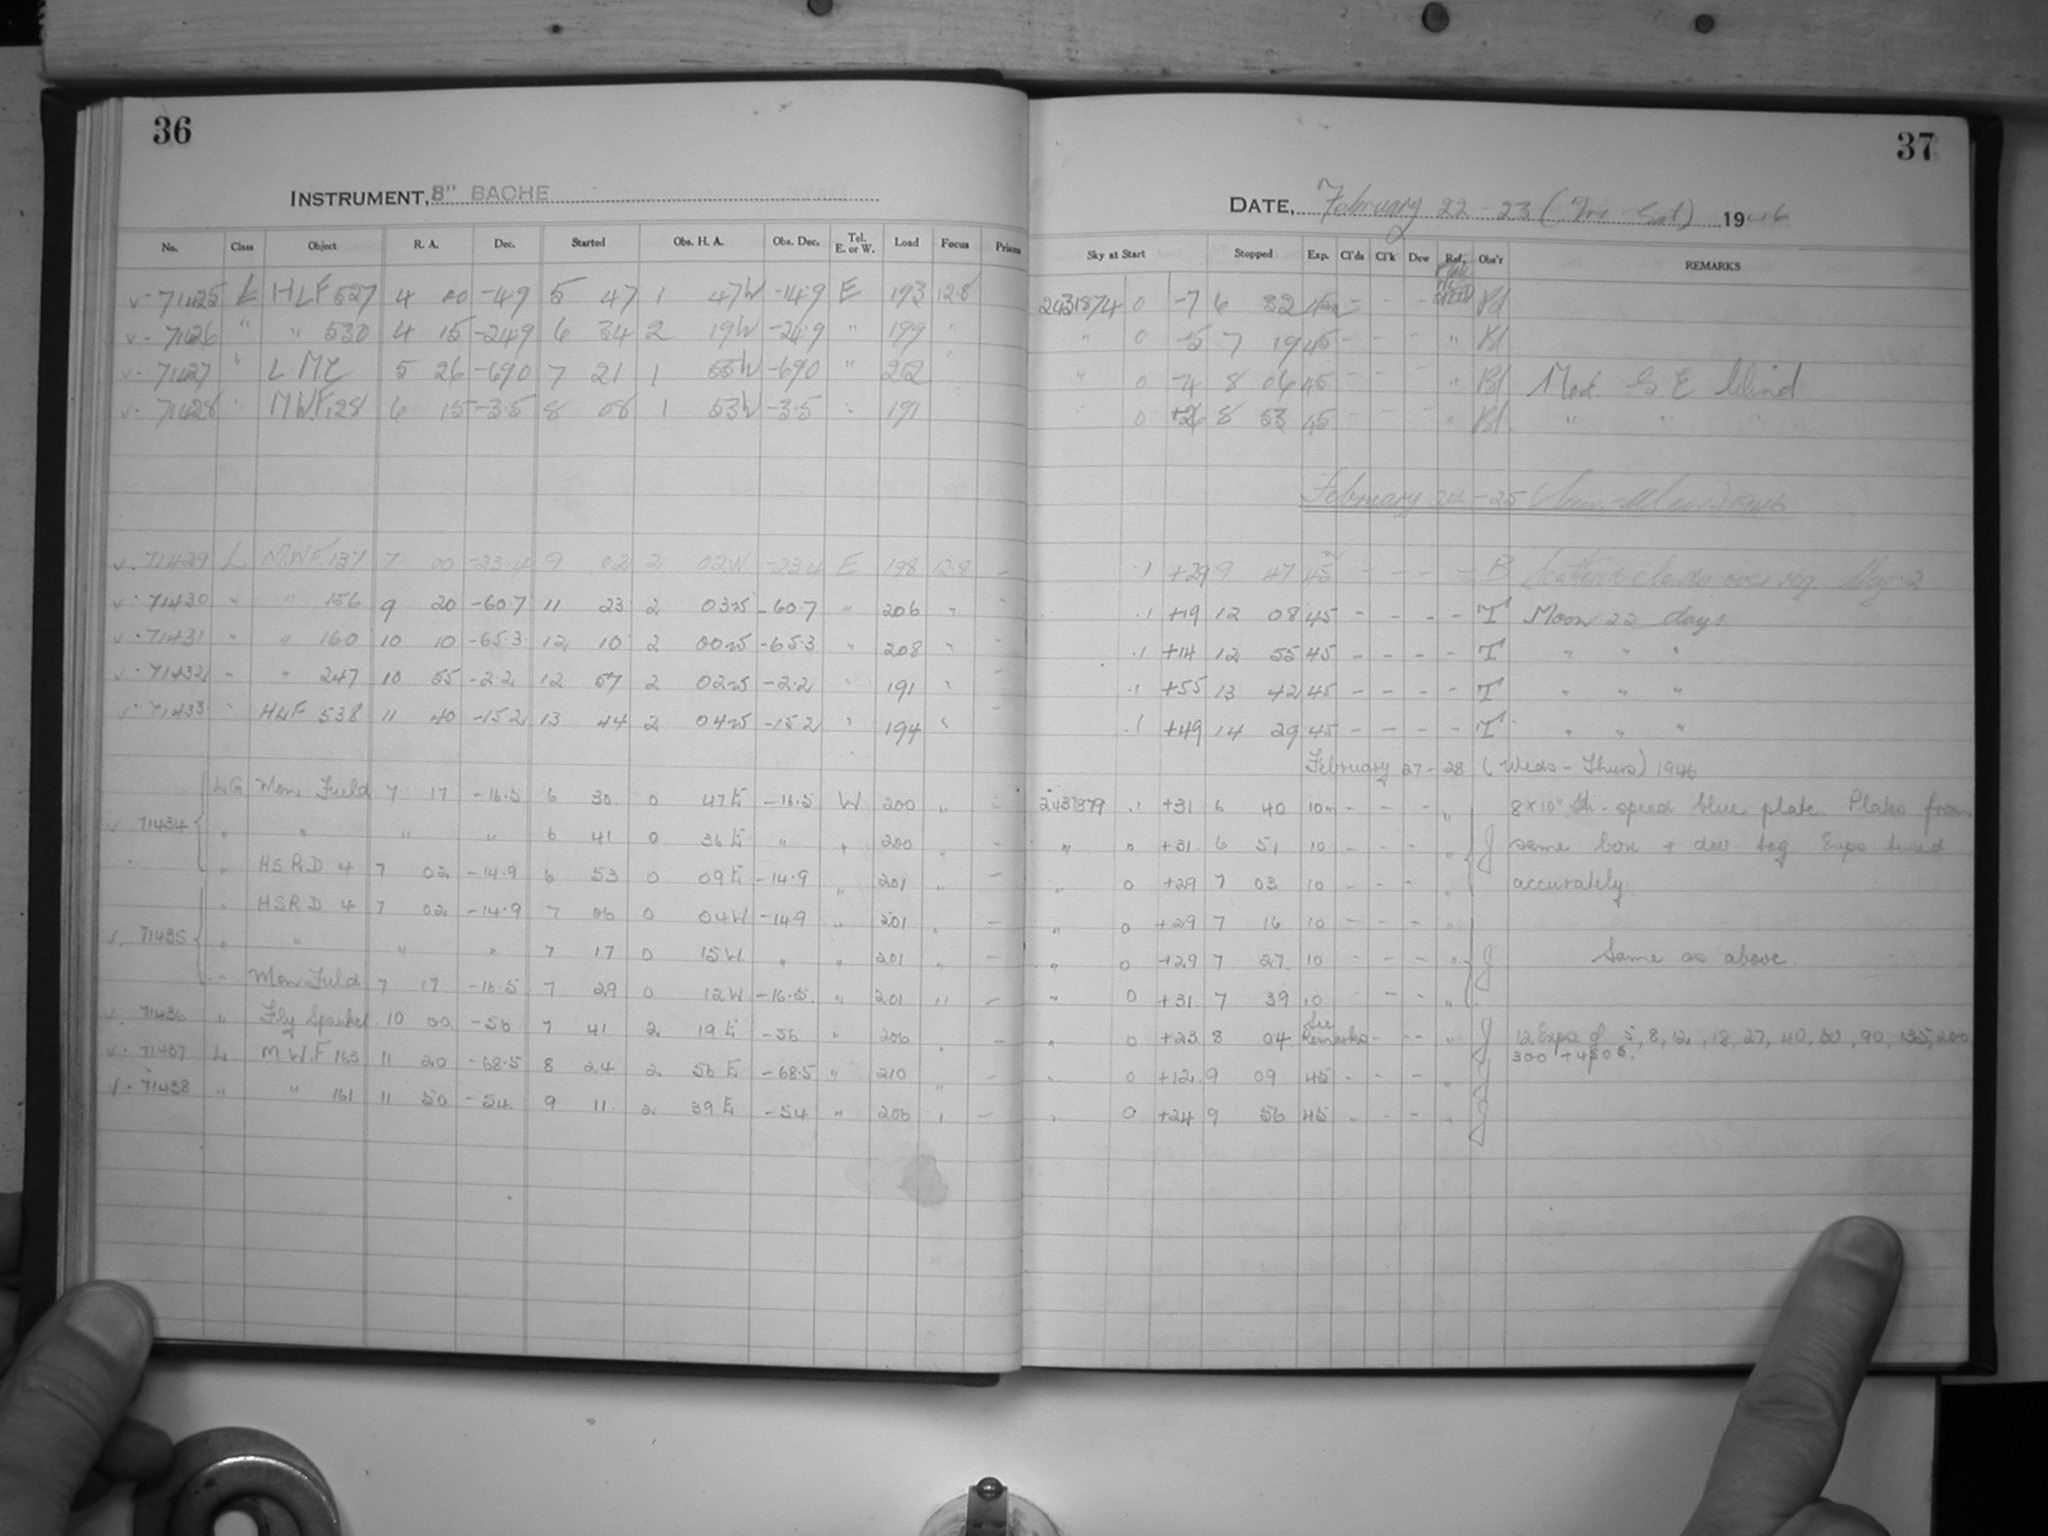 36
37
INSTRUMENT, 8" BACHE
DATE, February 22 - 23 (Fri - Sat) 1946
No. Class Object R. A. Dec. Started Obs. H. A. Obs. Dec. Tel. E. or W. Load Focus Prisms Sky at Start Stopped Exp. Cl'ds Cl'k Dew Ref. Obs'r REMARKS
v. 71425 L HLF 527 4 00 -14.9 5 47 1 47W -14.9 E 193 12.8 0 -7 6 32 45m - - - Bl
v. 71426 " " 530 4 15 -24.9 6 34 2 19W -24.9 " 199 " " 0 -5 7 19 45 - - - " Bl
v. 71427 " L MC 5 26 -69.0 7 21 1 55W -69.0 " 212 " 0 -4 8 06 45 - - - " Bl Mod. S E Wind
v. 71428 " MWF 128 6 15 -3.5 8 08 1 53W -3.5 " 191 " 0 +26 8 53 45 - - - " Bl. " " "
February 24 - 25 (Sun - Mon) 1946
v. 71429 L. MWF. 137 7 00 -23.4 9 02 2 02W -23.4 E 198 12.8 - .1 +29 9 47 45 - - - - B Scattered clouds over reg.
v. 71430 " " 156 9 20 -60.7 11 23 2 03W -60.7 " 206 " - .1 +19 12 08 45 - - - - T Moon 22 days
v. 71431 " " 160 10 10 -65.3 12 10 2 00W -65.3 " 208 " - .1 +14 12 55 45 - - - - T " " "
v. 71432 " " 247 10 55 -2.2 12 57 2 02W -2.2 " 191 " - .1 +55 13 42 45 - - - - T " " "
v. 71433 " HLF 538 11 40 -15.2 13 44 2 04W -15.2 " 194 " - .1 +49 14 29 45 - - - - T " " "
February 27 - 28 (Weds - Thurs) 1946
LG Mon Field 7 17 -16.5 6 30 0 47E -16.5 W 200 " - .1 +31 6 40 10m - - - " 8 x 10" Hi-speed blue plate. Plates from
v. 71434 " " " " 6 41 0 36E " " 200 " - " 0 +31 6 51 10 - - - " J same box + dev. tog. Exps timed
" HSRD 4 7 02 -14.9 6 53 0 09E -14.9 " 201 " - " 0 +29 7 03 10 - - - " accurately.
" HSRD 4 7 02 -14.9 7 06 0 04W -14.9 " 201 " - " 0 +29 7 16 10 - - - "
v. 71435 " " " " 7 17 0 15W " " 201 " - " 0 +29 7 27 10 - - - " J Same as above.
" Mon Field 7 17 -16.5 7 29 0 12W -16.5 " 201 " - " 0 +31 7 39 10 - - - "
v. 71436 " Fly Spanker 10 00 -56 7 41 2 19E -56 " 206 " - " 0 +23 8 04 See Remarks - - - " J 12 Exps of 5, 8, 12, 18, 27, 40, 60, 90, 135, 200
300 + 450s.
v. 71437 L MWF 163 11 20 -68.5 8 24 2 56E -68.5 " 210 " - " 0 +12 9 09 45 - - - " J
v. 71438 " " 161 11 50 -54 9 11 2 39E -54 " 206 " - " 0 +24 9 56 45 - - - " J